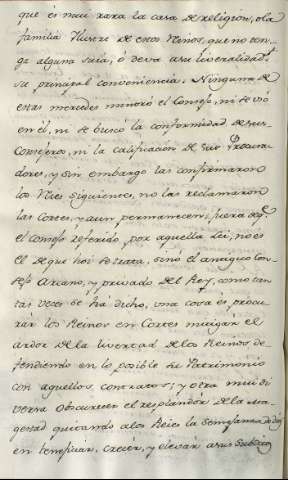 que es mui rara la casa de religion, ola
familia Ilustre de estos Reinos, que no ten-
ga alguna suia, ó deva a su liveralidad
su principal conveniencia: Ninguna de
estas mercedes minoró el Consejo, ni se vió
en él, ni se buscó la conformidad de sus
Consejeros, ni la calificacion de sus Procura-
dores, y sin embargo las confirmaron
los Reies siguientes, no las reclamaron
las Cortes, y aun permanecen; fuera de q.e
el Consejo referido por aquella Lei, no és
el de que hoi se trata, sino el antiguo Con-
sejo Arcano, y privado del Rey, como tan-
tas veces se há dicho, una cosa es, procu-
rár los Reinos en Cortes mitigár el
ardor de la livertad de los Reinos de-
fendiendo en lo posible su Patrimonio
con aquellos contratos; y otra mui di-
versa obscurecer el resplandór de la Ma-
gestad quitando alos Reies la semejanza de Dios
en beneficiár, crecér, y elevár asus Subditos